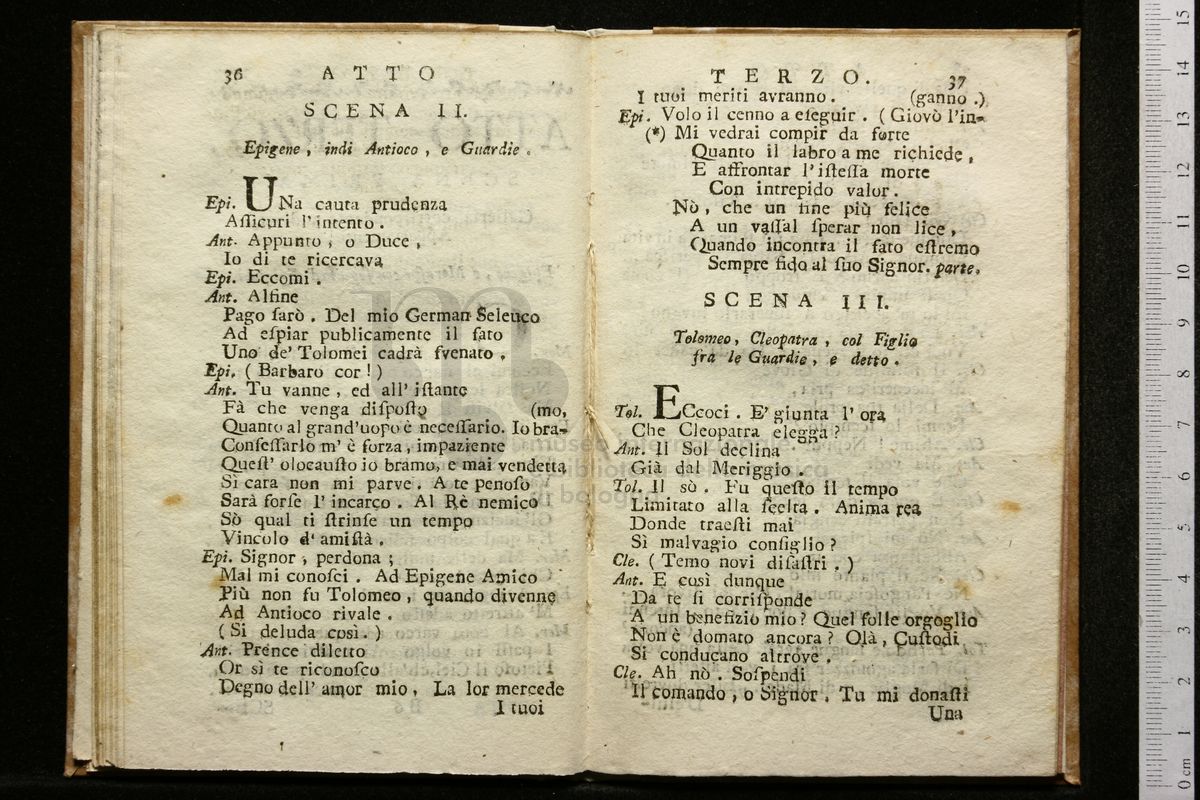 36 ATTO
SCENA II.
Epigene, indi Antioco, e Guardie.
Epi. UNa cauta prudenza
Aſſicuri l'intento.
Ant. Appunto, o Duce,
Io di te ricercava
Epi. Eccomi.
Ant. Alfine
Pago ſarò. Del mio German Seleuco
Ad eſpiar publicamente il fato
Uno de' Tolomei cadrà ſvenato,
Epi. (Barbaro cor!)
Ant. Tu vanne, ed all' iſtante
Fà che venga diſpoſto (mo,
Quanto al grand'uopo è neceſſario. Io bra-
Confeſſarlo m' è forza, impaziente
Queſt' olocauſto io bramo, e mai vendetta
Sì cara non mi parve. A te penoſo
Sarà forſe l' incarco. Al Rè nemico
Sò qual ti ſtrinſe un tempo
Vincolo d' amiſtà.
Epi. Signor, perdona;
Mal mi conoſci. Ad Epigene Amico
Più non fu Tolomeo, quando divenne
Ad Antioco rivale.
(Si deluda così.)
Ant. Prence diletto
Or sì te riconoſco
Degno dell' amor mio, La lor mercede
I tuoi
TERZO. 37
I tuoi meriti avranno. (ganno.)
Epi. Volo il cenno a eſeguir. (Giovò l'in-
(*) Mi vedrai compir da forte
Quanto il labro a me richiede,
E affrontar l' iſteſſa morte
Con intrepido valor.
Nò, che un fine più felice
A un vaſſal ſperar non lice,
Quando incontra il fato eſtremo
Sempre fido al ſuo Signor. parte.
SCENA III.
Tolomeo, Cleopatra, col Figlio
fra le Guardie, e detto.
Tol. ECcoci. E' giunta l' ora
Che Cleopatra elegga?
Ant. Il Sol declina
Già dal Meriggio.
Tol. Il sò. Fu queſto il tempo
Limitato alla ſcelta. Anima rea
Donde traeſti mai
Sì malvagio conſiglio?
Cle. (Temo novi diſaſtri.)
Ant. E così dunque
Da te ſi corriſponde
A un benefizio mio? Quel folle orgoglio
Non è domato ancora? Olà, Cuſtodi
Si conducano altrove.
Cle. Ah nò. Soſpendi
Il comando, o Signor. Tu mi donaſti
Una